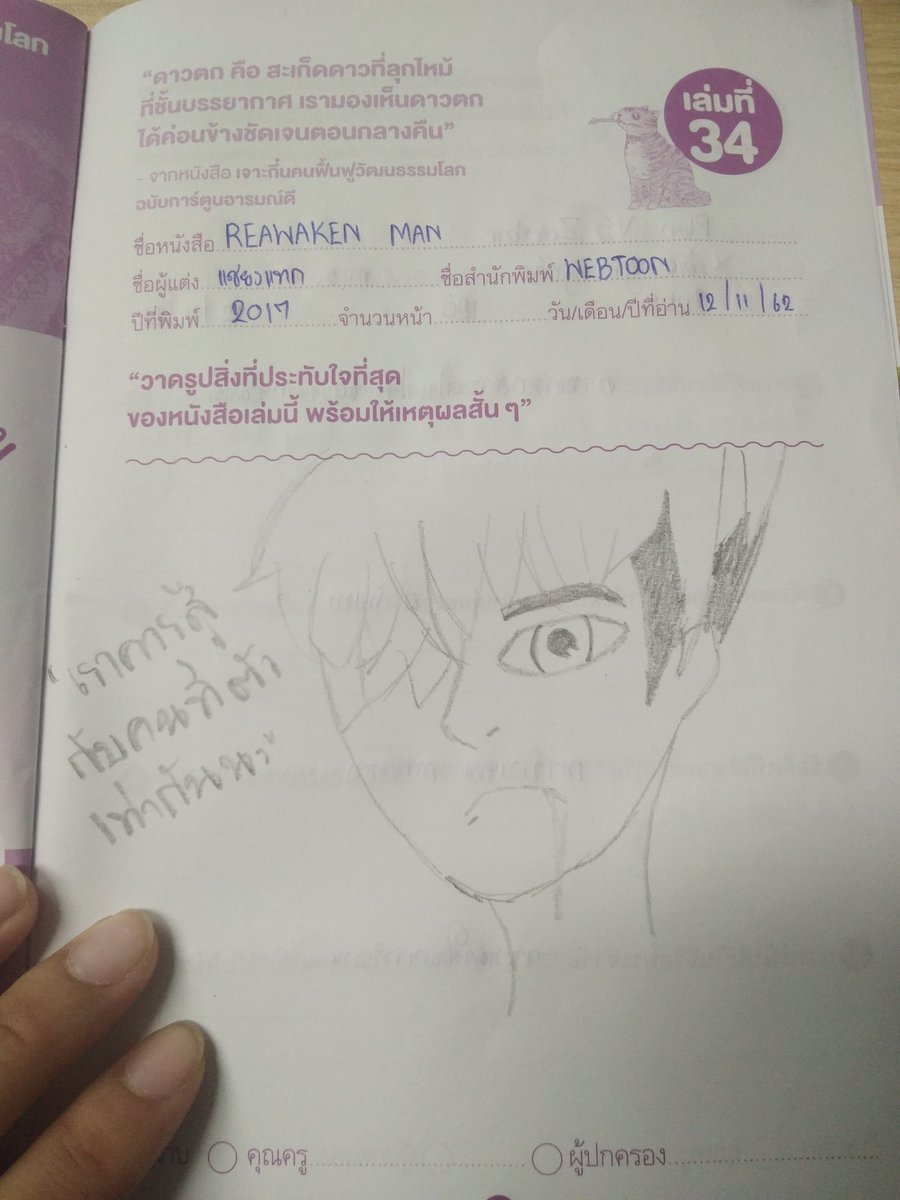 โลก
“ดาวตก คือ สะเก็ดดาวที่ลุกไหม้
ที่ชั้นบรรยากาศ เรามองเห็นดาวตก
ได้ค่อนข้างชัดเจนตอนกลางคืน”
- จากหนังสือ เจาะกึ๋นคนฟื้นฟูวัฒนธรรมโลก
ฉบับการ์ตูนอารมณ์ดี
เล่มที่
34
ชื่อหนังสือ REAWAKEN MAN
ชื่อผู้แต่ง แชยงแทก ชื่อสำนักพิมพ์ WEBTOON
ปีที่พิมพ์ 2017 จำนวนหน้า วัน/เดือน/ปีที่อ่าน 12/11/62
“วาดรูปสิ่งที่ประทับใจที่สุด
ของหนังสือเล่มนี้ พร้อมให้เหตุผลสั้น ๆ”
"เราควรสู้
กับคนที่ตัว
เท่ากันนะ"
คุณครู ผู้ปกครอง